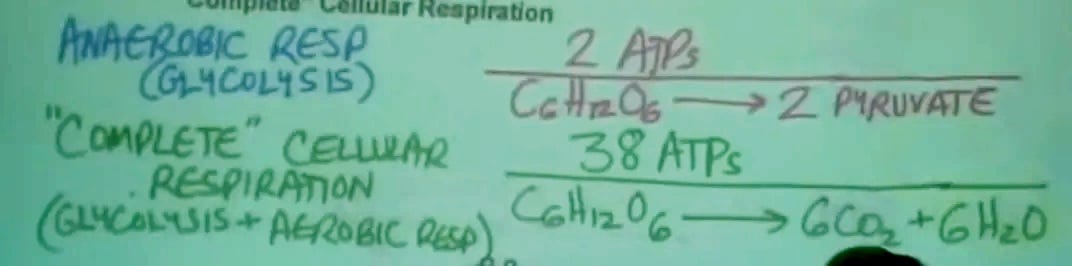 "Complete" Cellular Respiration
ANAEROBIC RESP
(GLYCOLYSIS)
2 ATPs
C6H12O6 → 2 PYRUVATE
"COMPLETE" CELLULAR
RESPIRATION
(GLYCOLYSIS + AEROBIC RESP)
38 ATPs
C6H12O6 → 6CO2 + 6H2O